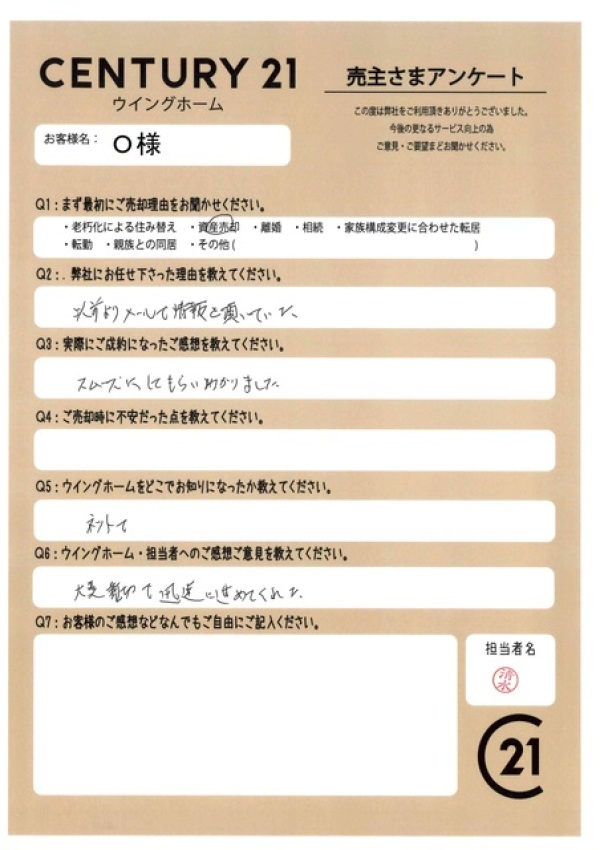 CENTURY 21
ウイングホーム
売主さまアンケート
この度は弊社をご利用頂きありがとうございました。
今後の更なるサービス向上の為
ご意見・ご要望まどお聞かせください。
お客様名： O様
Q1：まず最初にご売却理由をお聞かせください。
・老朽化による住み替え ・資産売却 ・離婚 ・相続 ・家族構成変更に合わせた転居
・転勤 ・親族との同居 ・その他( )
Q2：. 弊社にお任せ下さった理由を教えてください。
以前よりメールで情報を頂いていた
Q3：実際にご成約になったご感想を教えてください。
スムーズにしてもらい
Q4：ご売却時に不安だった点を教えてください。
Q5：ウイングホームをどこでお知りになったか教えてください。
ネットで
Q6：ウイングホーム・担当者へのご感想ご意見を教えてください。
大変親切で迅速に進めてくれた
Q7：お客様のご感想などなんでもご自由にご記入ください。
担当者名
清水
C21